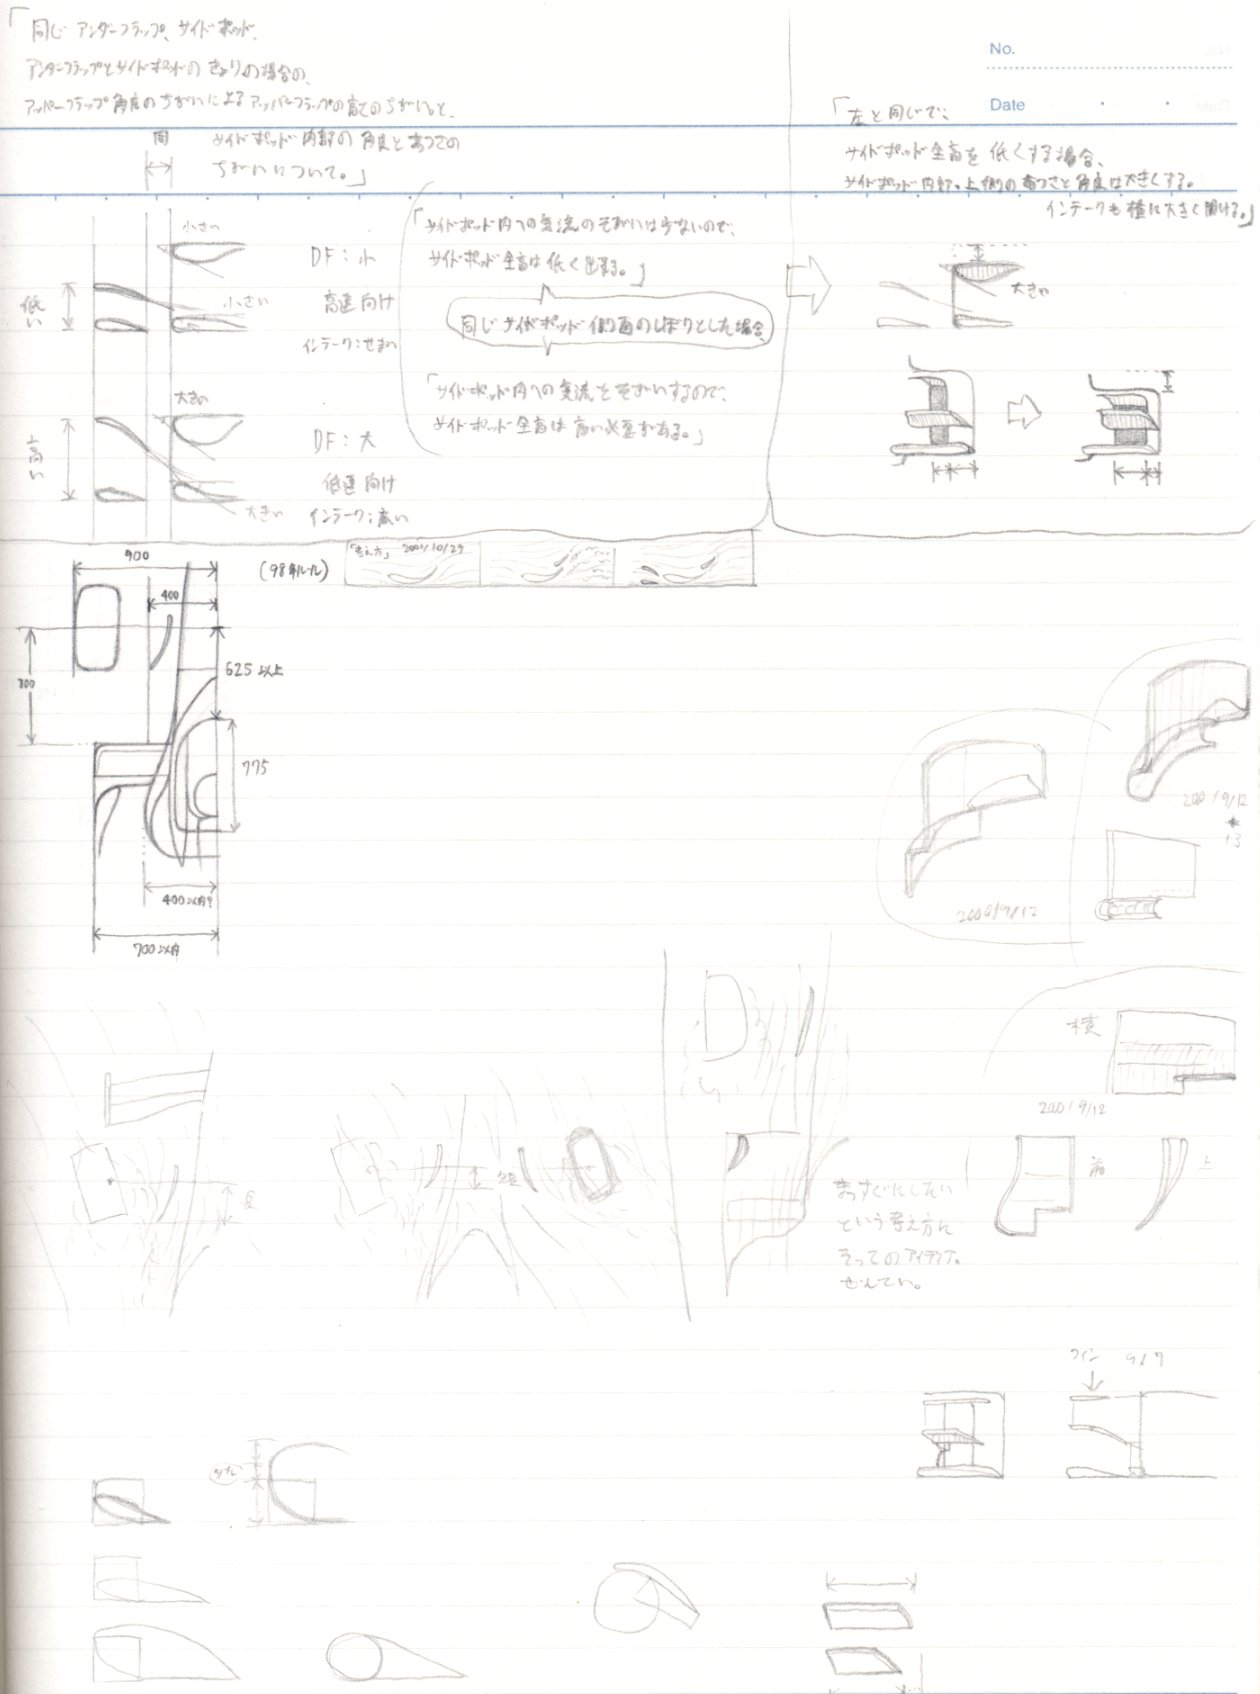 「同じ アンダーフラップ、サイドポッド、
アンダーフラップとサイドポッドの きょりの場合の、
アッパーフラップ角度のちがいによるアッパーフラップの高さのちがいと、
サイドポッド内部の 角度とあつさの
ちがいについて。」
同
No.
Date
「左と同じで、
サイドポッド全高を 低くする場合、
サイドポッド内部、上側のあつさと角度は大きくする。
インテークも横に大きく開ける。」
小さい
DF：小
低い
小さい
高速向け
インテーク：せまい
「サイドポッド内への気流の
は少ないので、
サイドポッド全高は 低く出来る。」
同じ サイドポッド側面のしぼりとした場合、
「サイドポッド内への気流を
するので、
サイドポッド全高は 高い必要がある。」
大きい
大きい
DF：大
高い
低速向け
大きい
インテーク：広い
900
(98年ルール)
「考え方」 2001/10/29
400
625 以上
800
775
400以内?
700以内
2001/9/12
13
2000/9/12
横
2001/9/12
長
短
前
上
まっすぐにしたい
という考え方に
そってのアイデア。
ぜんてい。
ウイン 9/7